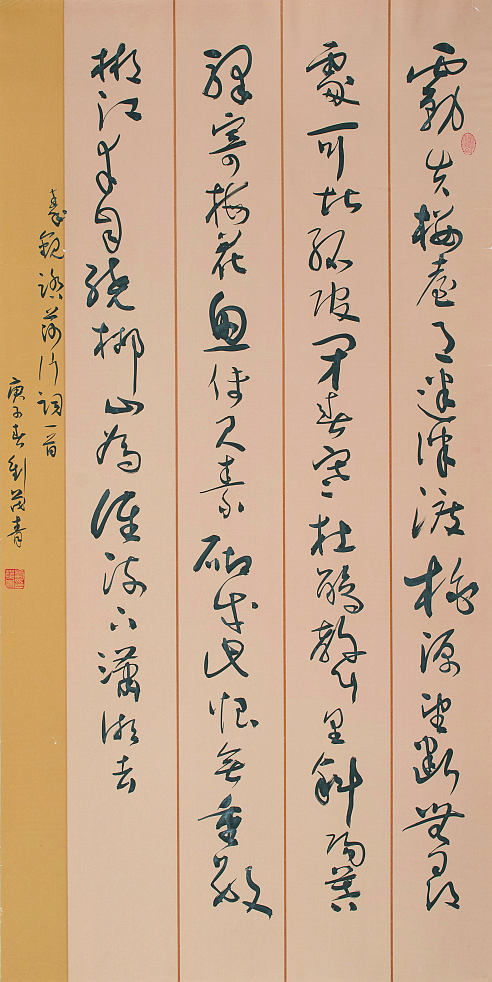 霧失樓臺月迷津渡桃源望斷無尋
處可堪孤館閉春寒杜鵑聲里斜陽暮
驛寄梅花魚傳尺素砌成此恨無重數
郴江幸自繞郴山為誰流下瀟湘去
秦觀踏莎行詞一首
庚子春劉茂青